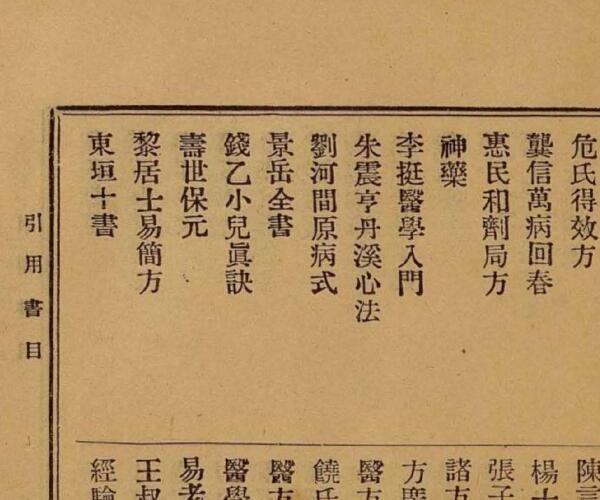 危氏得效方
龔信萬病回春
惠民和劑局方
神藥
李挺醫學入門
朱震亨丹溪心法
劉河間原病式
景岳全書
錢乙小兒眞訣
壽世保元
黎居士易簡方
東垣十書
陳言
楊士
張子
諸方
方廣
醫方
饒氏
醫方
醫學
易老
王叔
經驗
引用書目